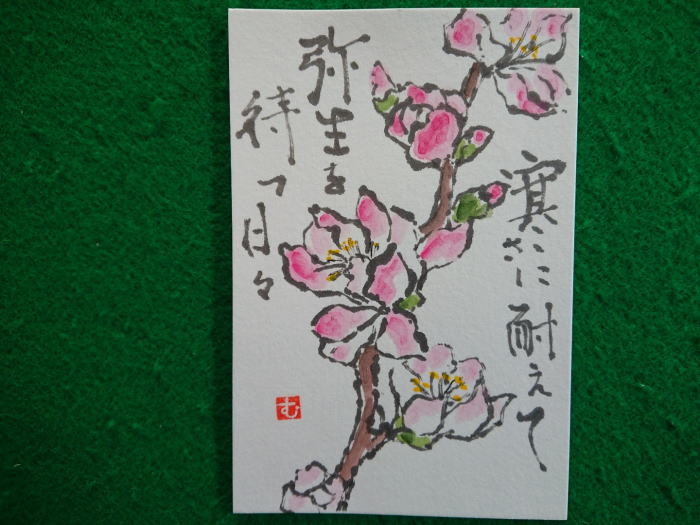 寒さに耐えて
弥生を
待つ日々
む